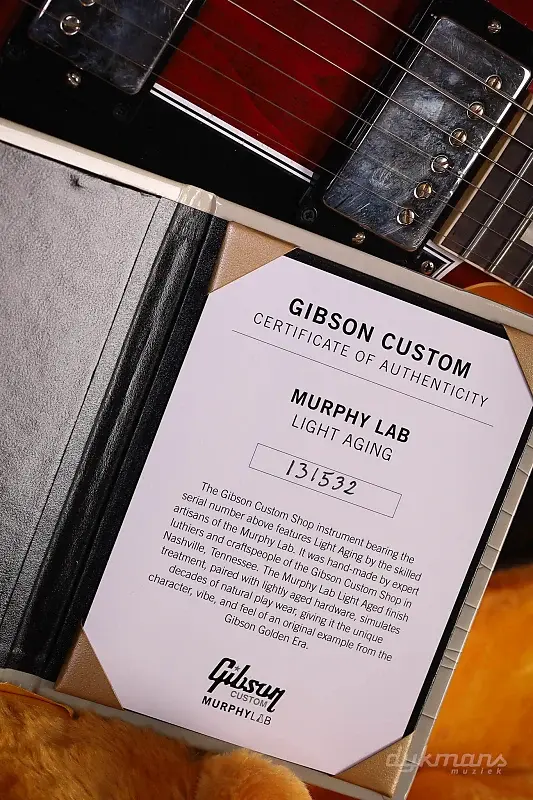 GIBSON CUSTOM
CERTIFICATE OF AUTHENTICITY
MURPHY LAB
LIGHT AGING
131532
The Gibson Custom Shop instrument bearing the
serial number above features Light Aging by the skilled
artisans of the Murphy Lab. It was hand-made by expert
luthiers and craftspeople of the Gibson Custom Shop in
Nashville, Tennessee. The Murphy Lab Light Aged finish
treatment, paired with lightly aged hardware, simulates
decades of natural play wear, giving it the unique
character, vibe, and feel of an original example from the
Gibson Golden Era.
Gibson
CUSTOM
MURPHYLAB
dykmans
muziek